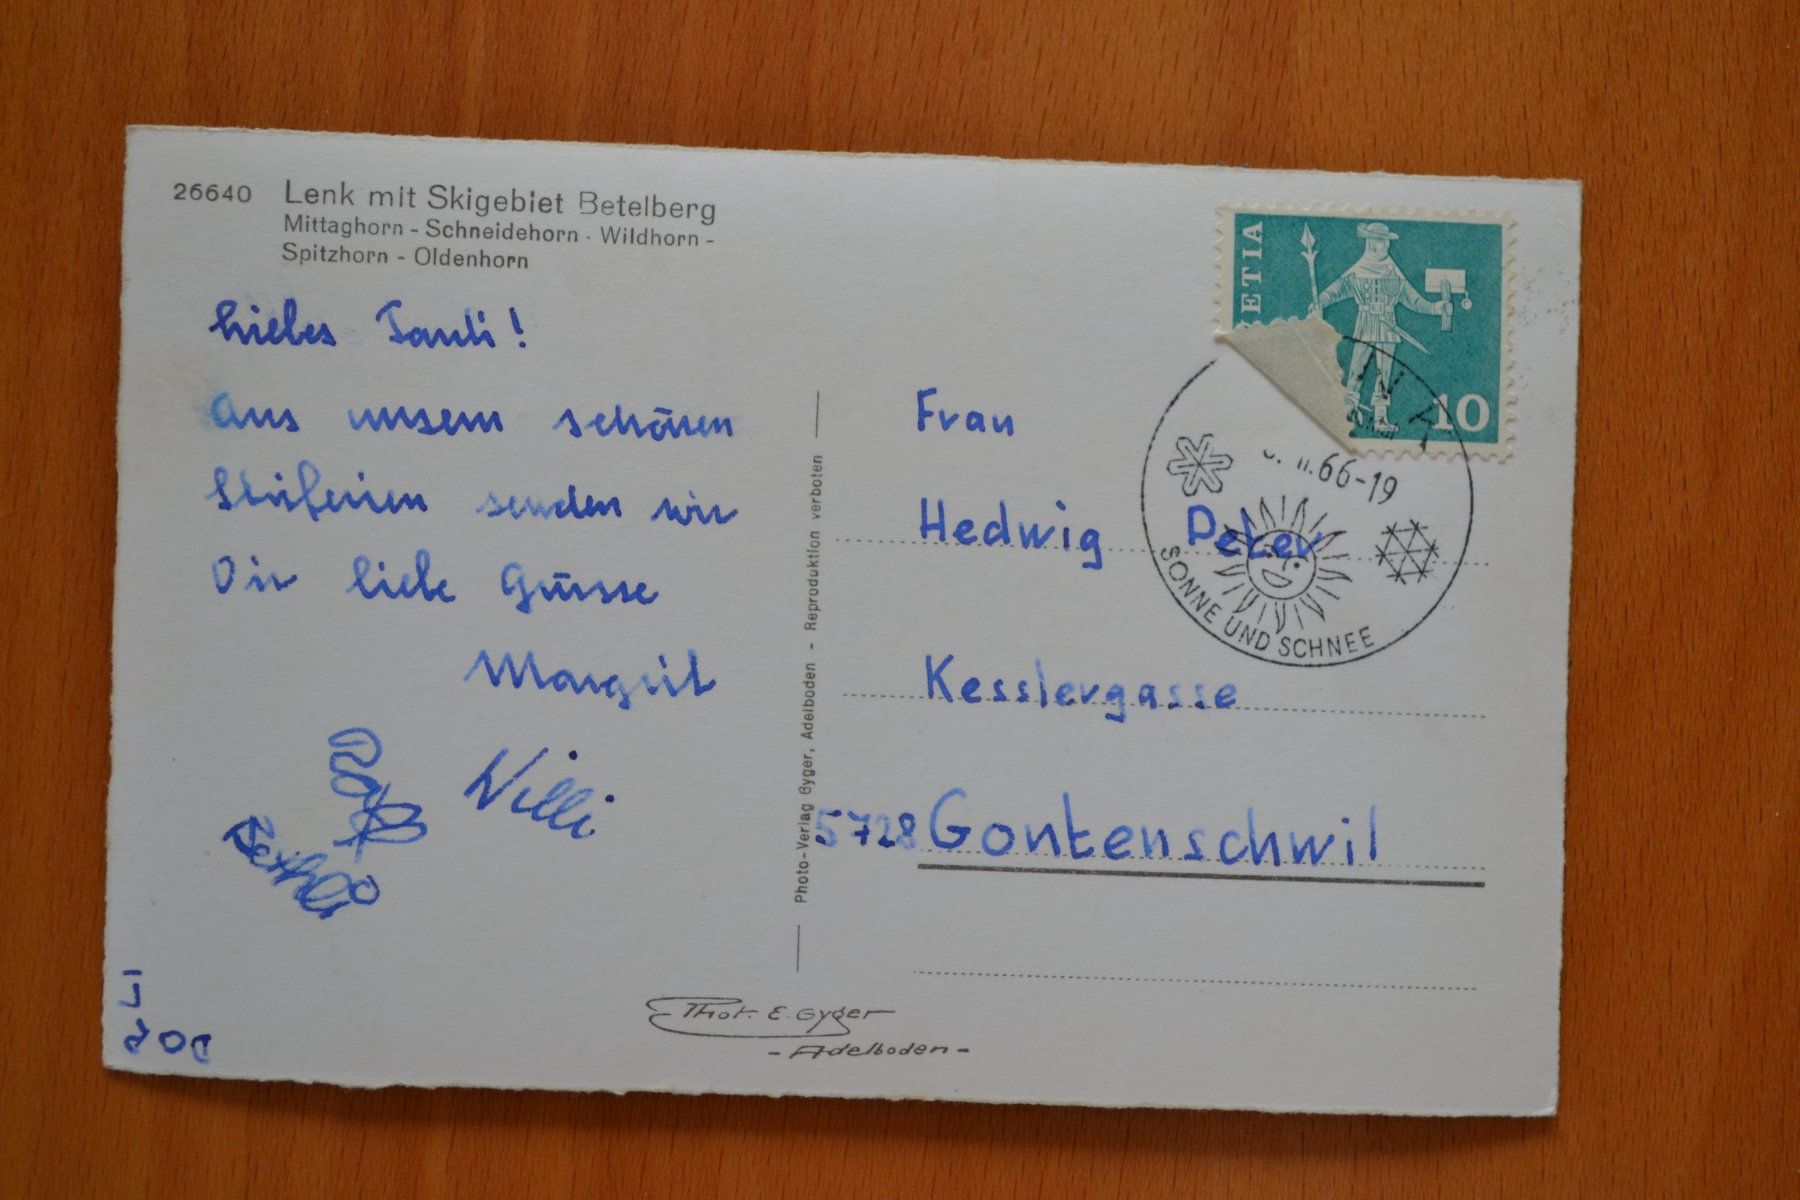 26640 Lenk mit Skigebiet Betelberg
Mittaghorn - Schneidehorn - Wildhorn -
Spitzhorn - Oldenhorn
Liebes Tanti!
Aus unsern schönen
Skiferien senden wir
Dir liebe Grüsse
Margrit
Willi
Rolf
Bethli
DORLI
Photo-Verlag Gyger, Adelboden - Reproduktion verboten
Phot. E. Gyger
- Adelboden -
ETIA
10
.66-19
SONNE UND SCHNEE
Frau
Hedwig Peter
Kesslergasse
5728 Gontenschwil